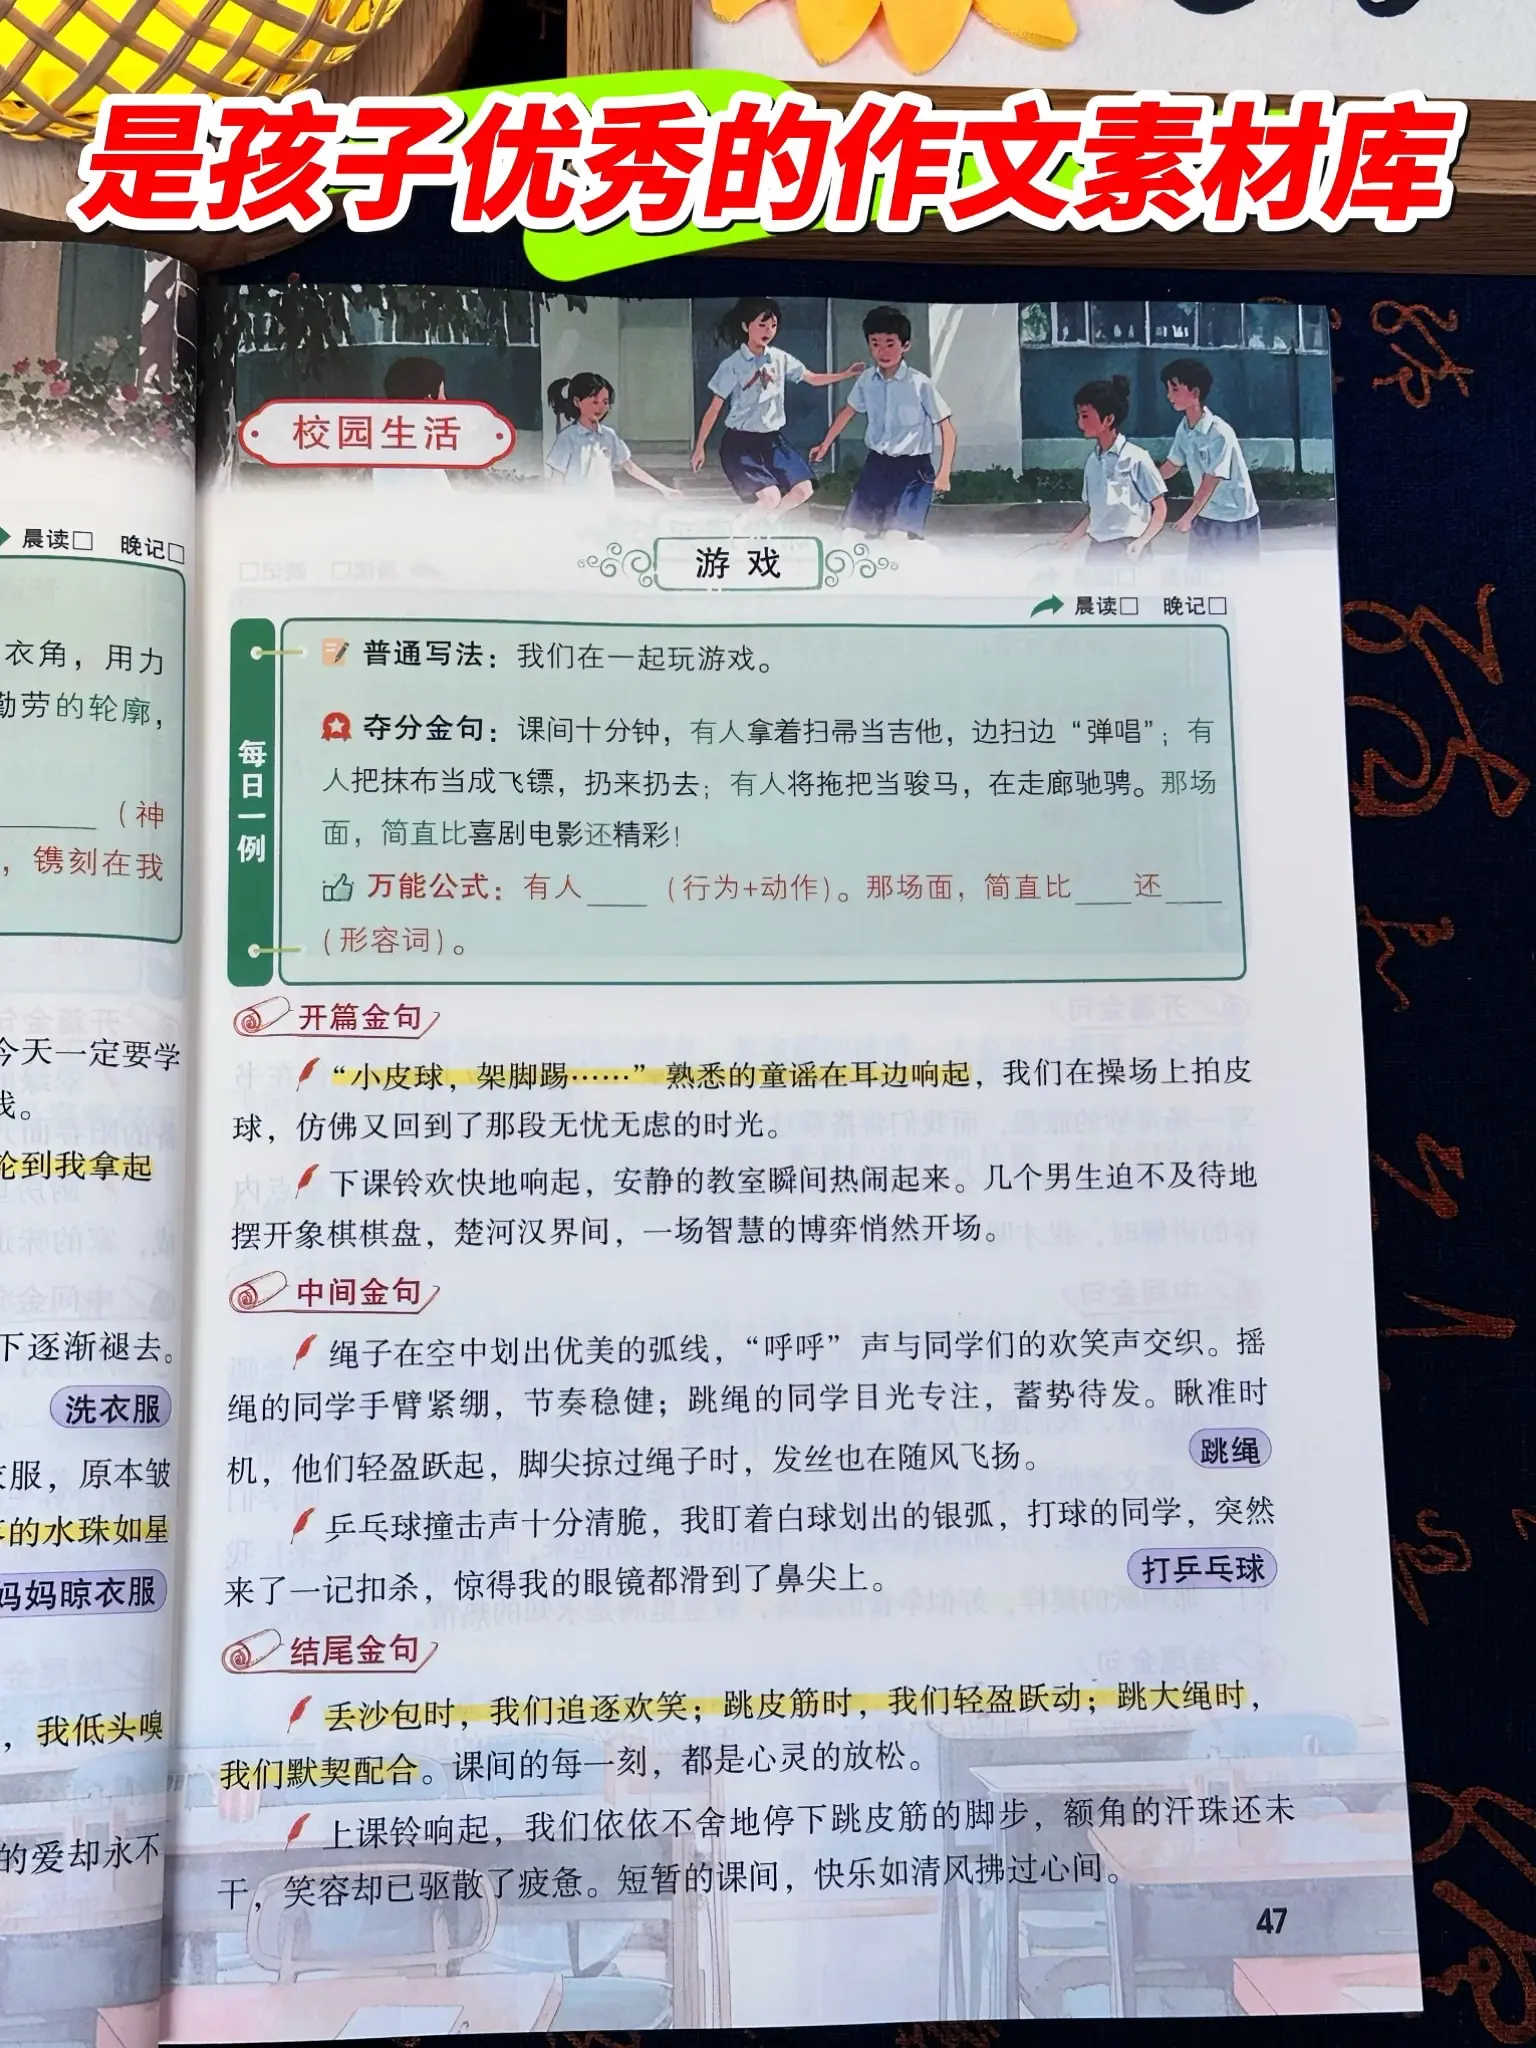 是孩子优秀的作文素材库
晨读□ 晚记□
衣角，用力
勤劳的轮廓，
（神
，镌刻在我
今天一定要学
我拿起
下逐渐褪去。
洗衣服
衣服，原本皱
的水珠如星
妈妈晾衣服
，我低头嗅
的爱却永不
校园生活
游戏
晨读□ 晚记□
每日一例
普通写法：我们在一起玩游戏。
夺分金句：课间十分钟，有人拿着扫帚当吉他，边扫边“弹唱”；有
人把抹布当成飞镖，扔来扔去；有人将拖把当骏马，在走廊驰骋。那场
面，简直比喜剧电影还精彩！
万能公式：有人____（行为+动作）。那场面，简直比____还____
（形容词）。
开篇金句
“小皮球，架脚踢……”熟悉的童谣在耳边响起，我们在操场上拍皮
球，仿佛又回到了那段无忧无虑的时光。
下课铃欢快地响起，安静的教室瞬间热闹起来。几个男生迫不及待地
摆开象棋棋盘，楚河汉界间，一场智慧的博弈悄然开场。
中间金句
绳子在空中划出优美的弧线，“呼呼”声与同学们的欢笑声交织。摇
绳的同学手臂紧绷，节奏稳健；跳绳的同学目光专注，蓄势待发。瞅准时
机，他们轻盈跃起，脚尖掠过绳子时，发丝也在随风飞扬。 跳绳
乒乓球撞击声十分清脆，我盯着白球划出的银弧，打球的同学，突然
来了一记扣杀，惊得我的眼镜都滑到了鼻尖上。 打乒乓球
结尾金句
丢沙包时，我们追逐欢笑；跳皮筋时，我们轻盈跃动；跳大绳时，
我们默契配合。课间的每一刻，都是心灵的放松。
上课铃响起，我们依依不舍地停下跳皮筋的脚步，额角的汗珠还未
干，笑容却已驱散了疲惫。短暂的课间，快乐如清风拂过心间。
47